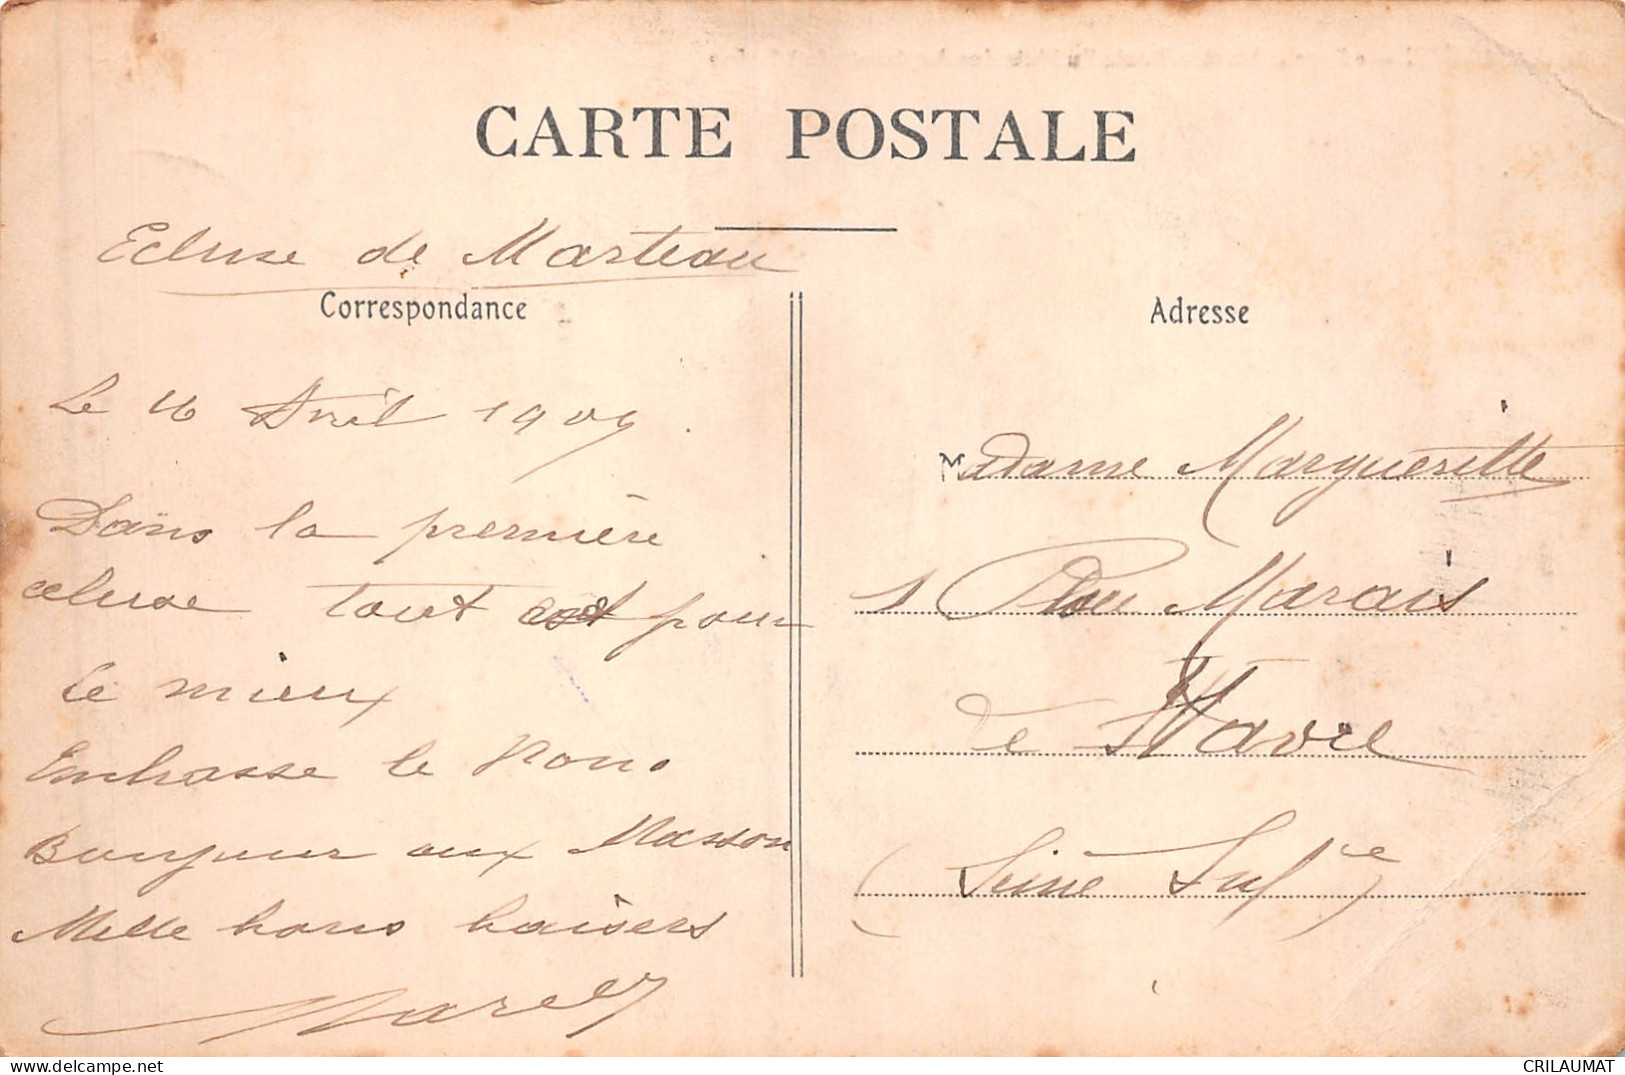 CARTE POSTALE
Ecluse de Marteau
Correspondance
Le 16 Avril 1909.
Dans la première
ecluse tout est pour
le mieux
Embrasse le
Bonjour aux Masson
Mille bons baisers
Marcel
Adresse
Madame Margueritte
1 Rue Marais
de Havre
(Seine Infre)
CRILAUMAT